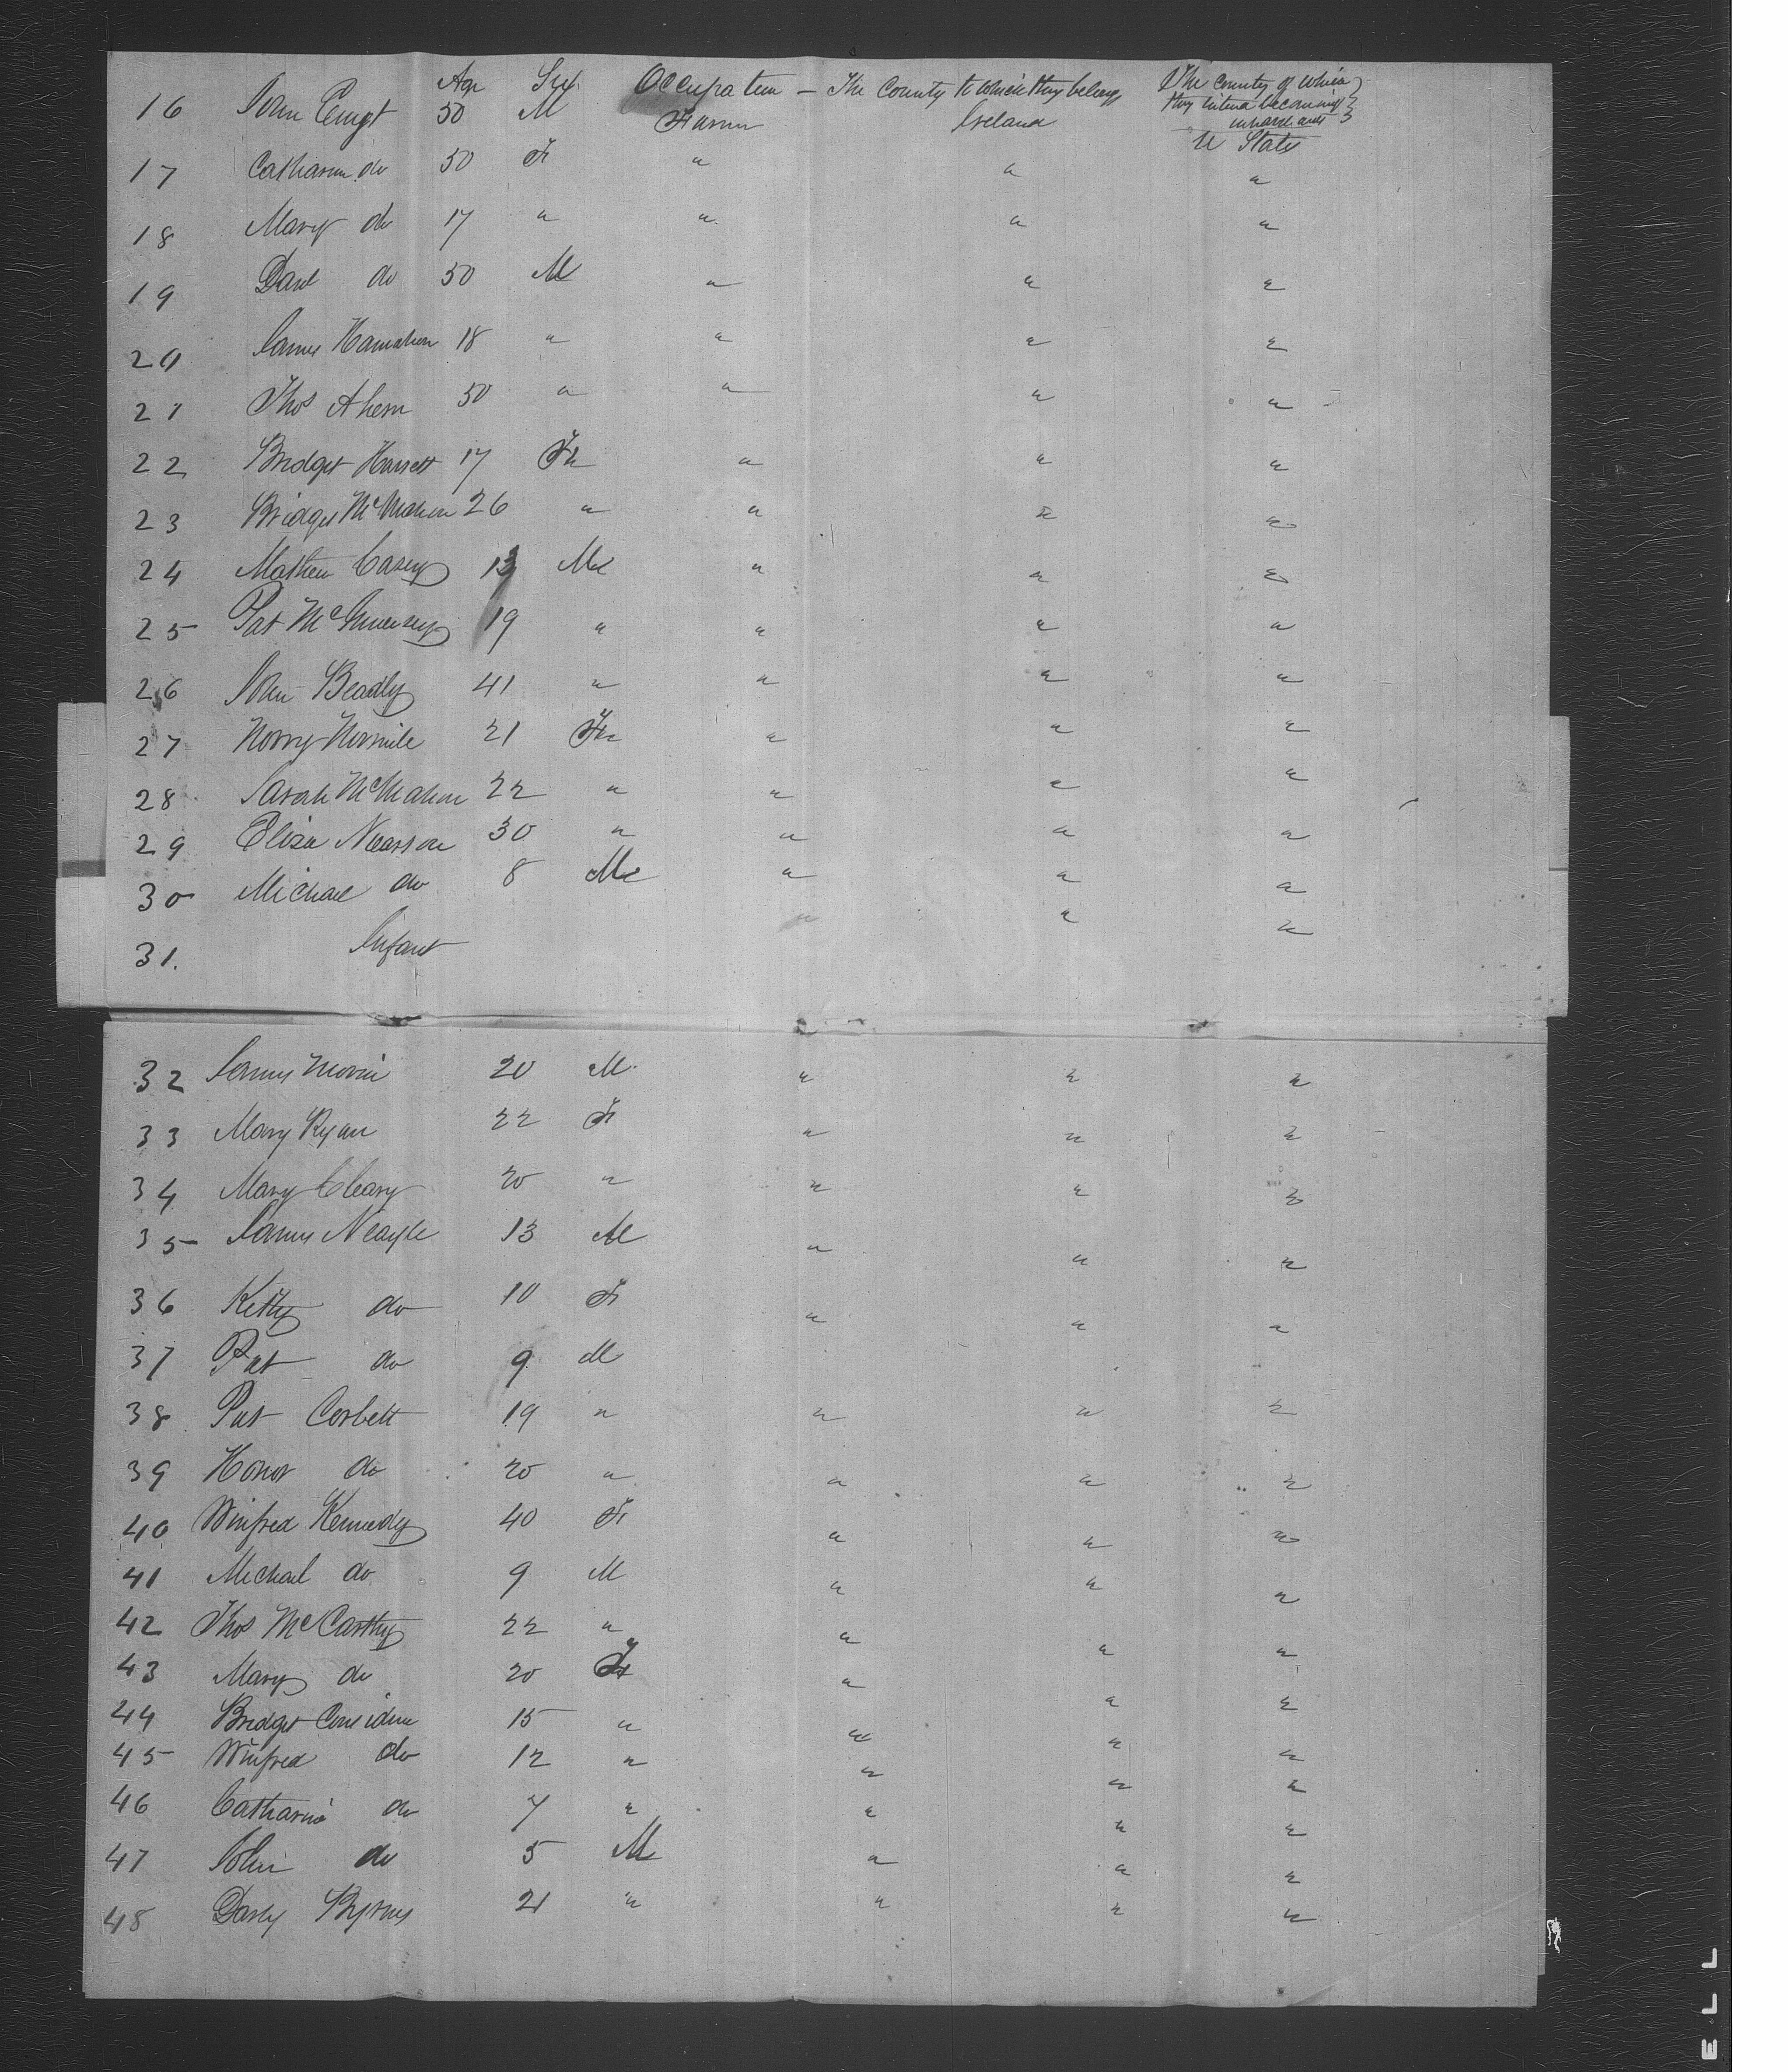 Age Sex Occupation — The County to which they belong The County of which
they intend becoming
inhabitants
16 John 50 M Farmer Ireland U States
17 Catharine do 50 F " " "
18 Mary do 17 " " " "
19 Danl do 50 M " " "
20 James 18 " " " "
21 Thos Ahern 50 " " " "
22 Bridget Hassett 17 Fe " " "
23 Bridget McMahon 26 " " " "
24 Mathew Casey 13 Ml " " "
25 Pat 19 " " " "
26 John Beadly 41 " " " "
27 Norry Normile 21 Fe " " "
28 Sarah McMahon 22 " " " "
29 Eliza 30 " " " "
30 Michael do 8 Ml " " "
31. Infant " " "
32 James 20 M. " " "
33 Mary Ryan 22 F " " "
34 Mary Cleary 20 " " " "
35 James Neagle 13 M " " "
36 Kitty do 10 F " " "
37 Pat do 9 M
38 Pat Corbett 19 " " " "
39 Honor do 20 " " " "
40 Winfred Kennedy 40 F " " "
41 Michael do 9 M " " "
42 Thos McCarthy 22 " " " "
43 Mary do 20 F " " "
44 Bridget Considine 15 " " " "
45 Winfred do 12 " " " "
46 Catharine do 7 " " " "
47 John do 5 M " " "
48 Darby Byrnes 21 " " " "
E L L